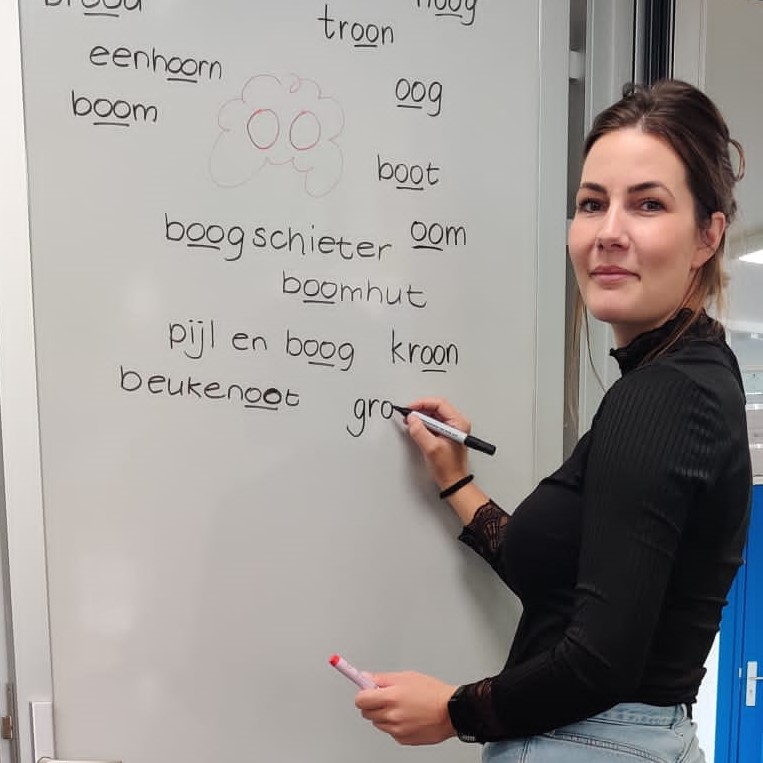 brood
hoog
troon
eenhoorn
oog
boom
boot
boogschieter
oom
boomhut
pijl en boog
kroon
beukenoot
gro